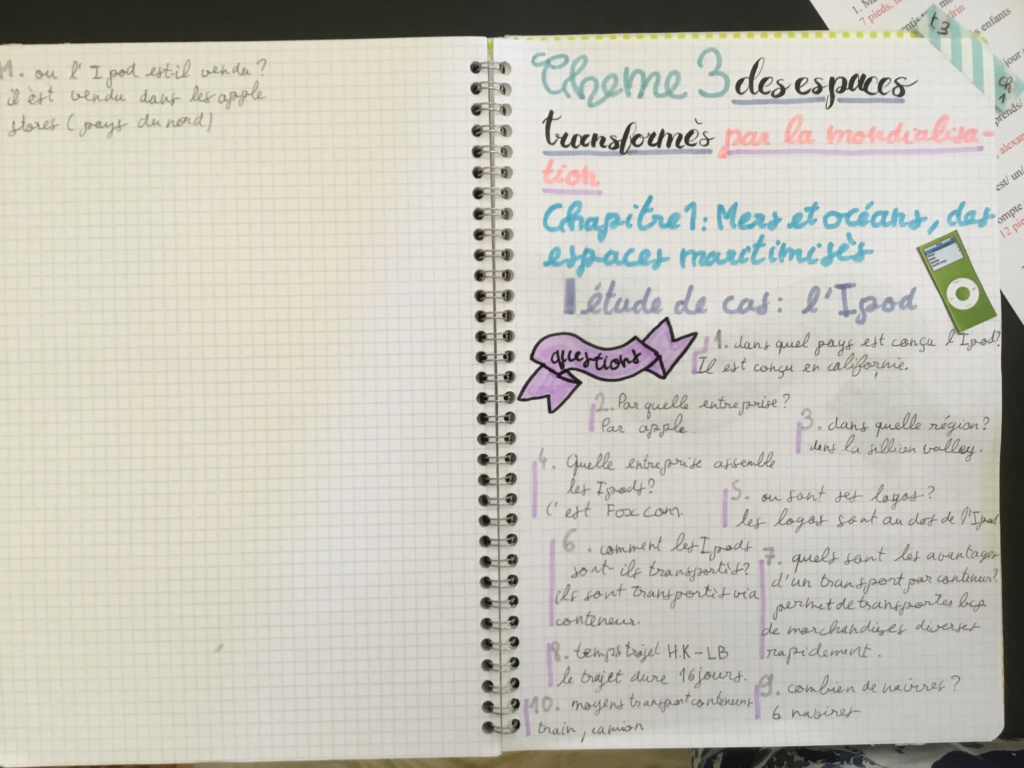 11. ou l'Ipod est il vendu?
il est vendu dans les apple
stores (pays du nord)
Theme 3 des espaces
transformès par la mondialisa-
tion
Chapitre 1: Mers et océans, des
espaces maritimisès
étude de cas: l'Ipod
questions
1. dans quel pays est conçu l'Ipod?
Il est conçu en californie.
2. Par quelle entreprise?
Par apple.
3. dans quelle région?
dans la sillion valley.
4. Quelle entreprise assemble
les Ipods?
C'est Foxcom.
5. ou sont ses logos?
les logos sont au dos de l'Ipod
6. comment les Ipods
sont-ils transportés?
ils sont transportés via
conteneur.
7. quels sont les avantages
d'un transport par conteneur?
permet de transporter bcp
de marchandises diverses
rapidement.
8. temps trajet H.K-LB
le trajet dure 16 jours.
9. combien de navires?
6 navires
10. moyens transport conteneurs
train, camion
t3
1. Ma
7 pieds,
enfants
jour
prends/
alexan
est/ un/
compte
12 pie